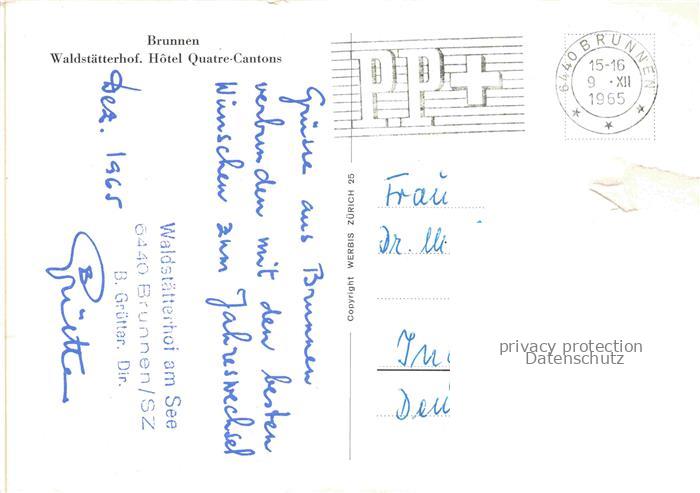 Brunnen
Waldstätterhof. Hôtel Quatre-Cantons
Grüsse aus Brunnen
verbunden mit den besten
Wünschen zum Jahreswechsel
Dez. 1965
Waldstätterhof am See
6440 Brunnen/SZ
B. Grütter. Dir.
B Grütter
Copyright WERBIS ZÜRICH 25
P.P.
6440 BRUNNEN
15-16
9.-XII
1965
Frau
Dr.
privacy protection
Datenschutz